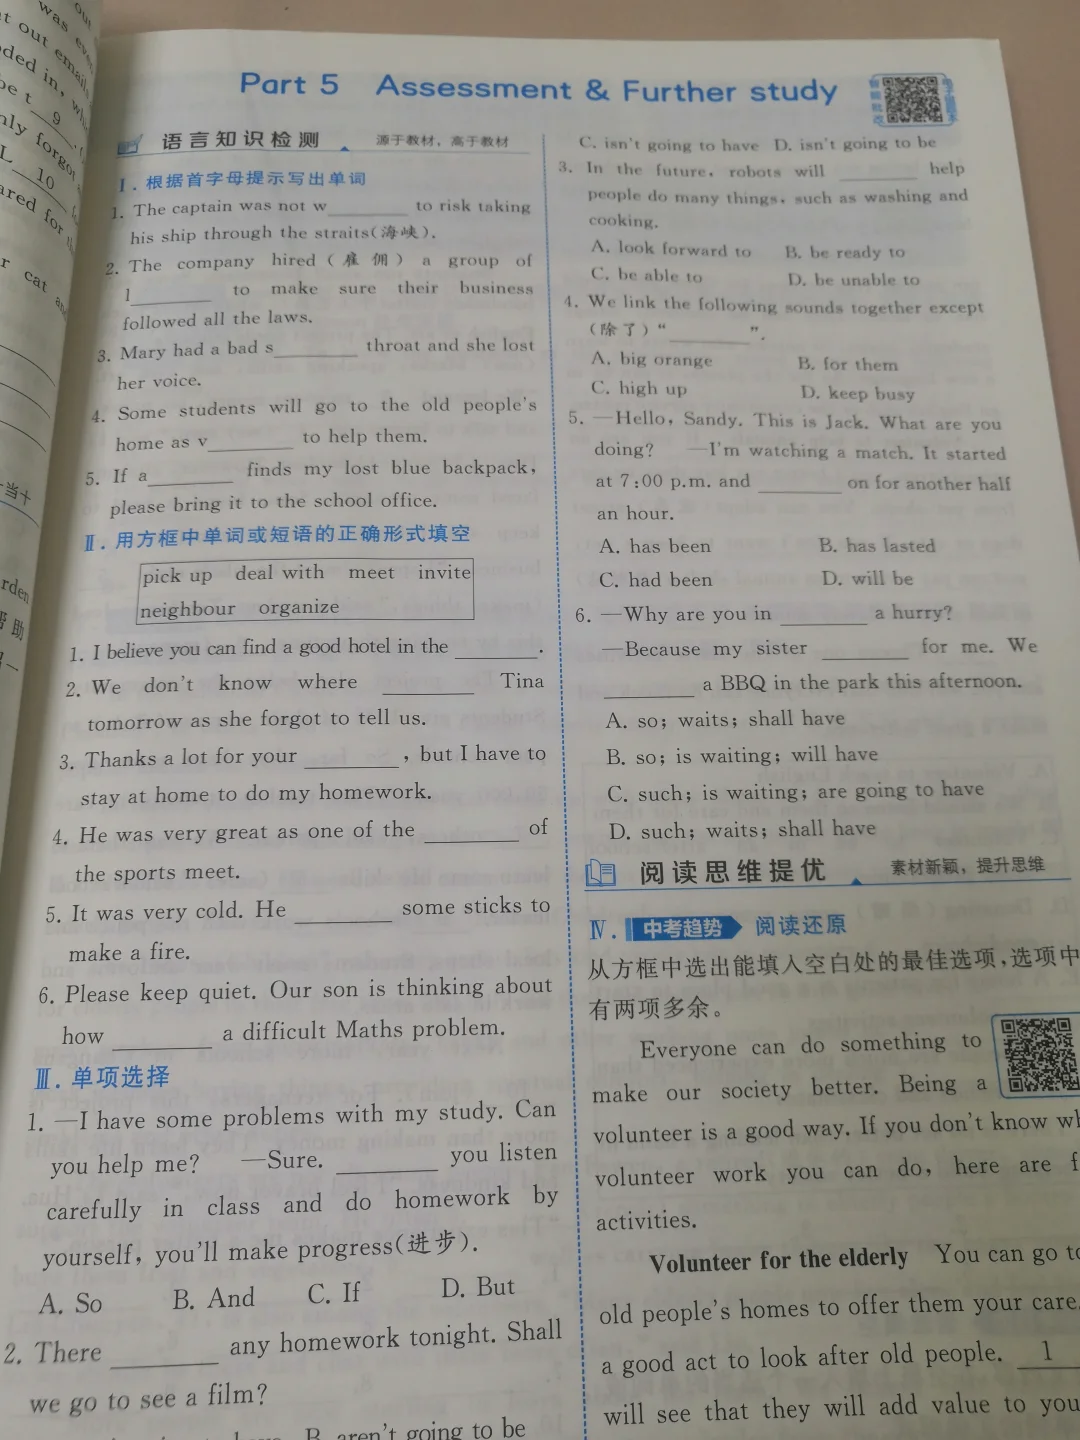 out
was ever
t out emails
ded in, wh
be t 9 .
nly forgot
L 10
ared for th
r cat and
当十
rden
帮助
Part 5 Assessment & Further study
语言知识检测 源于教材，高于教材
Ⅰ. 根据首字母提示写出单词
1. The captain was not w________ to risk taking
his ship through the straits(海峡).
2. The company hired(雇佣) a group of
l________ to make sure their business
followed all the laws.
3. Mary had a bad s________ throat and she lost
her voice.
4. Some students will go to the old people's
home as v________ to help them.
5. If a________ finds my lost blue backpack,
please bring it to the school office.
Ⅱ. 用方框中单词或短语的正确形式填空
pick up deal with meet invite
neighbour organize
1. I believe you can find a good hotel in the ________.
2. We don't know where ________ Tina
tomorrow as she forgot to tell us.
3. Thanks a lot for your ________, but I have to
stay at home to do my homework.
4. He was very great as one of the ________ of
the sports meet.
5. It was very cold. He ________ some sticks to
make a fire.
6. Please keep quiet. Our son is thinking about
how ________ a difficult Maths problem.
Ⅲ. 单项选择
1. —I have some problems with my study. Can
you help me? —Sure. ________ you listen
carefully in class and do homework by
yourself, you'll make progress(进步).
A. So B. And C. If D. But
2. There ________ any homework tonight. Shall
we go to see a film?
B. aren't going to be
C. isn't going to have D. isn't going to be
3. In the future, robots will ________ help
people do many things, such as washing and
cooking.
A. look forward to B. be ready to
C. be able to D. be unable to
4. We link the following sounds together except
(除了)“________”.
A. big orange B. for them
C. high up D. keep busy
5. —Hello, Sandy. This is Jack. What are you
doing? —I'm watching a match. It started
at 7:00 p.m. and ________ on for another half
an hour.
A. has been B. has lasted
C. had been D. will be
6. —Why are you in ________ a hurry?
—Because my sister ________ for me. We
________ a BBQ in the park this afternoon.
A. so; waits; shall have
B. so; is waiting; will have
C. such; is waiting; are going to have
D. such; waits; shall have
阅读思维提优 素材新颖，提升思维
Ⅳ. 中考趋势 阅读还原
从方框中选出能填入空白处的最佳选项,选项中
有两项多余。
Everyone can do something to
make our society better. Being a
volunteer is a good way. If you don't know wh
volunteer work you can do, here are f
activities.
Volunteer for the elderly You can go to
old people's homes to offer them your care.
a good act to look after old people. 1
will see that they will add value to you